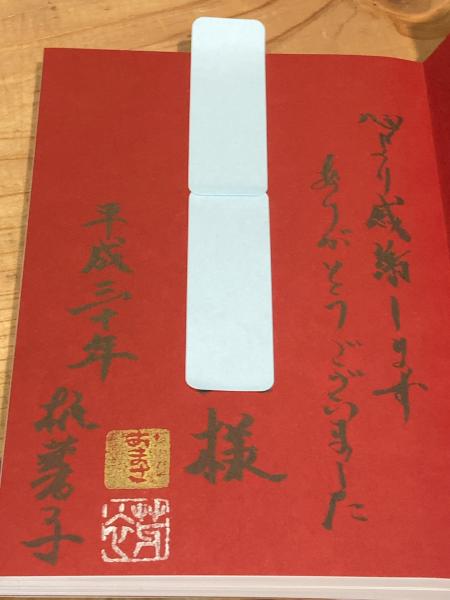 心より感謝します
ありがとうございました
様
平成三十年
おまさ